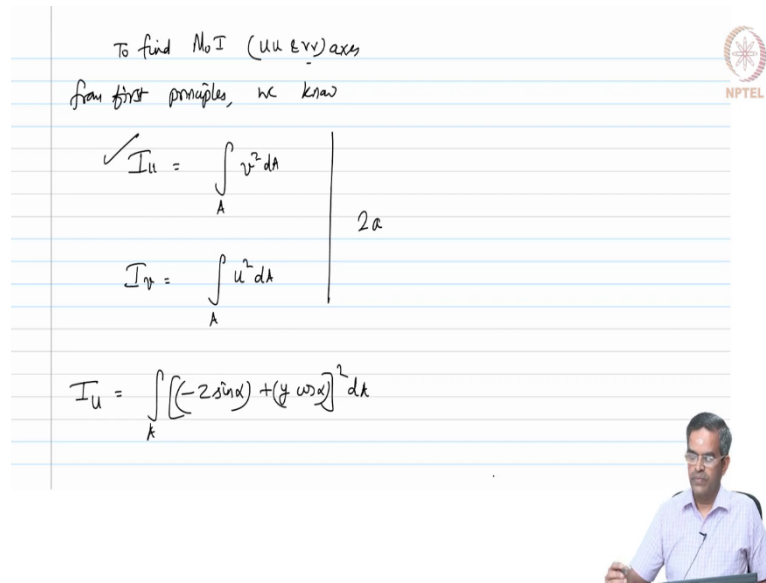 To find MoI (uu & vv) axes
from first principles, we know
NPTEL
✓ Iu = ∫A v² dA
2a
Iv = ∫A u² dA
Iu = ∫A [(-z sinα) + (y cosα)]² dA